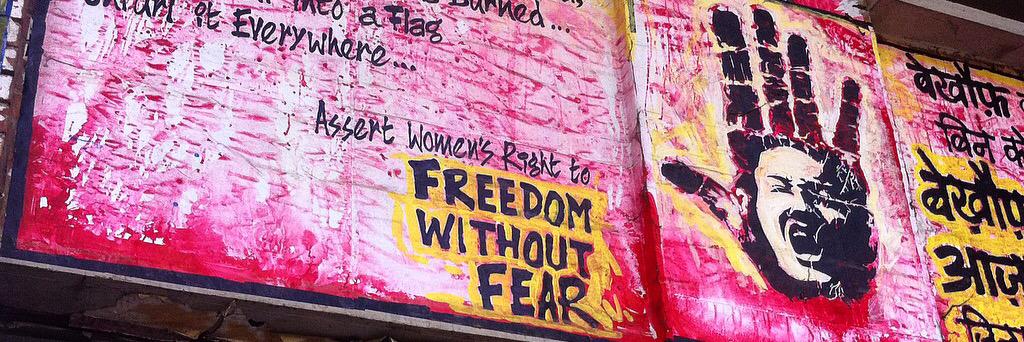 Burned...
into a Flag
it Everywhere...
Assert Women's Right to
FREEDOM
WITHOUT
FEAR
बेखौफ़
बिन
बेखौफ़